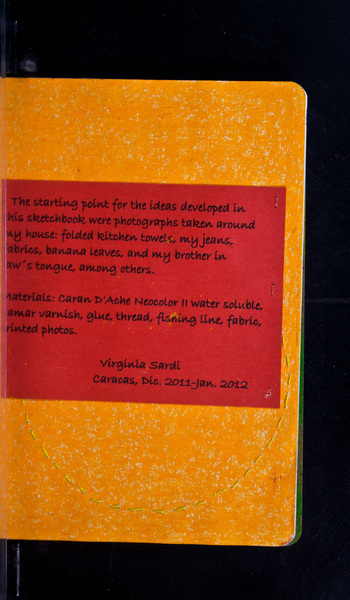 The starting point for the ideas developed in
his sketchbook were photographs taken around
my house: folded kitchen towels, my jeans,
abrics, banana leaves, and my brother in
aw´s tongue, among others.
Materials: Caran D'Ache Neocolor II water soluble,
amar varnish, glue, thread, fishing line, fabric,
rinted photos.
Virginia Sardi
Caracas, Dic. 2011-Jan. 2012